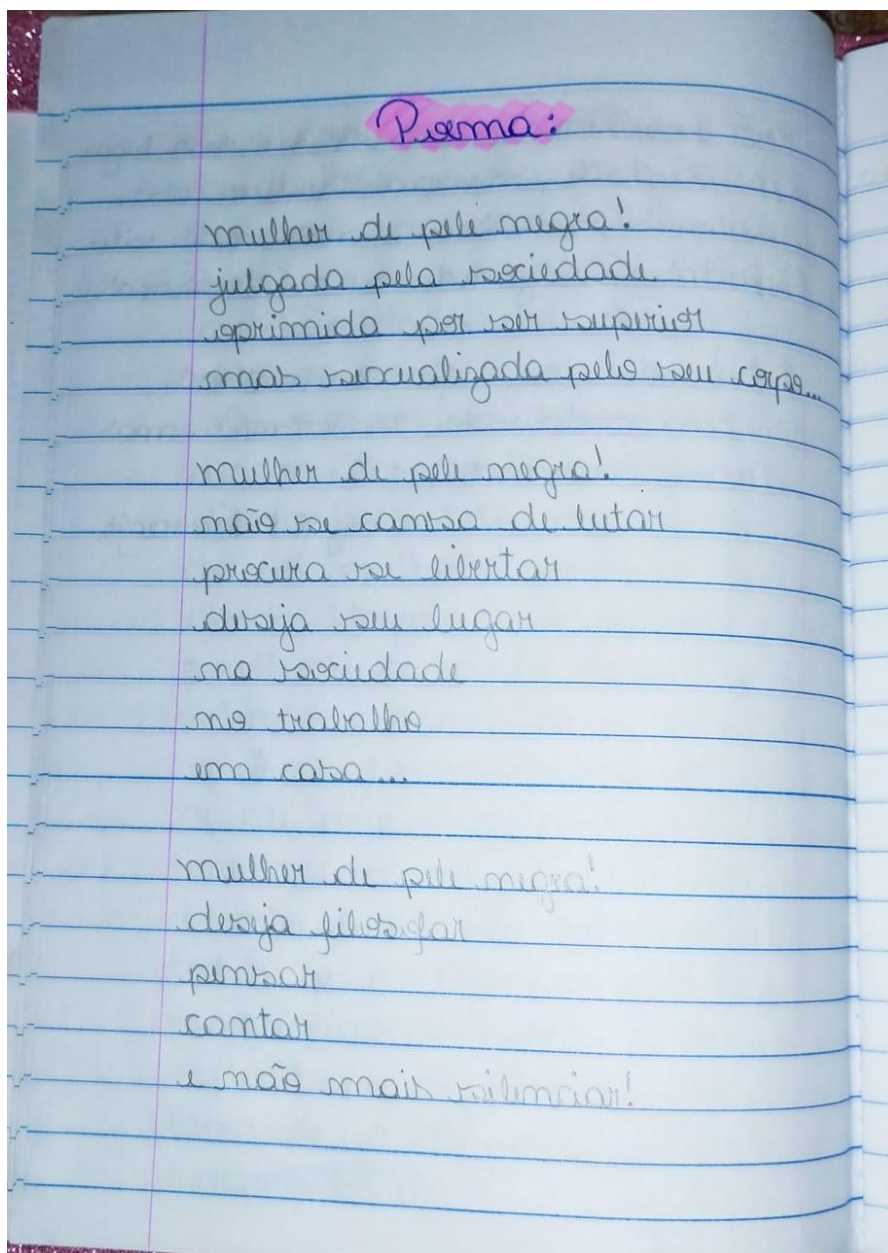 Poema:
mulher de pele negra!
julgada pela sociedade
oprimida por ser superior
mas sexualizada pelo seu corpo...
mulher de pele negra!
não se cansa de lutar
procura se libertar
deseja seu lugar
na sociedade
no trabalho
em casa...
mulher de pele negra!
deseja filosofar
pensar
cantar
e não mais silenciar!